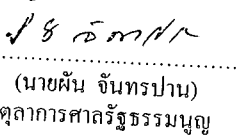 (นายผัน จันทรปาน)
ตุลาการศาลรัฐธรรมนูญ